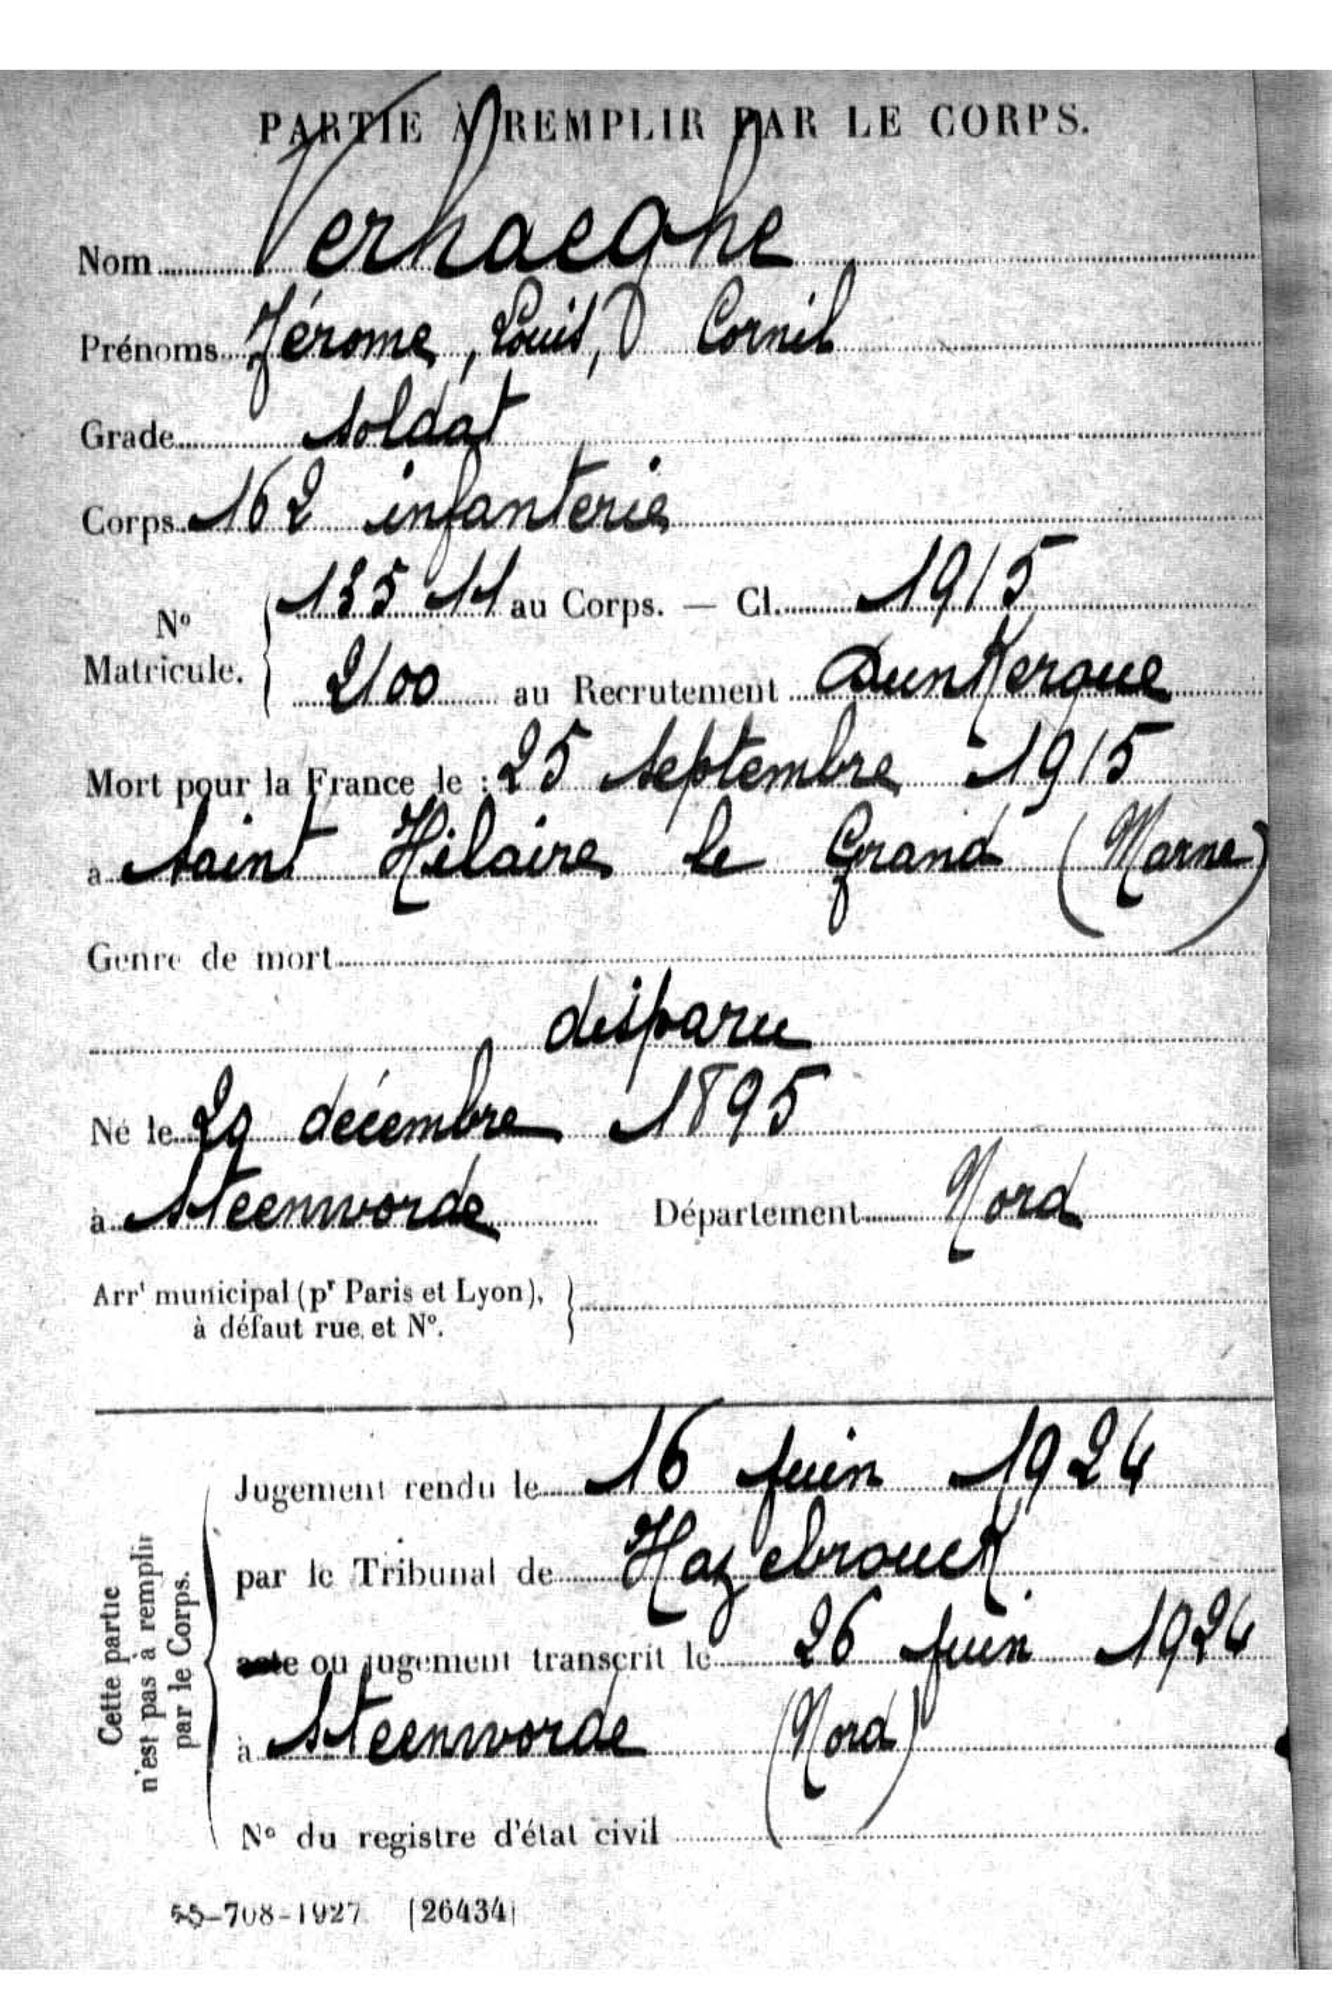 PARTIE À REMPLIR PAR LE CORPS.
Nom Verhaeghe
Prénoms Jérome, Louis, Cornil
Grade soldat
Corps 162 infanterie
N° Matricule. { 135 11 au Corps. — Cl. 1915
2100 au Recrutement Dunkerque
Mort pour la France le : 25 septembre 1915
à Saint Hilaire le Grand (Marne)
Genre de mort
disparu
Né le 29 décembre 1895
à Steenvorde Département Nord
Arrt municipal (pr Paris et Lyon), }
à défaut rue et N°.
Cette partie
n'est pas à remplir
par le Corps.
Jugement rendu le 16 juin 1924
par le Tribunal de Hazebrouck
acte ou jugement transcrit le 26 juin 1924
à Steenvorde (Nord)
N° du registre d'état civil
55-708-1927 [26434]